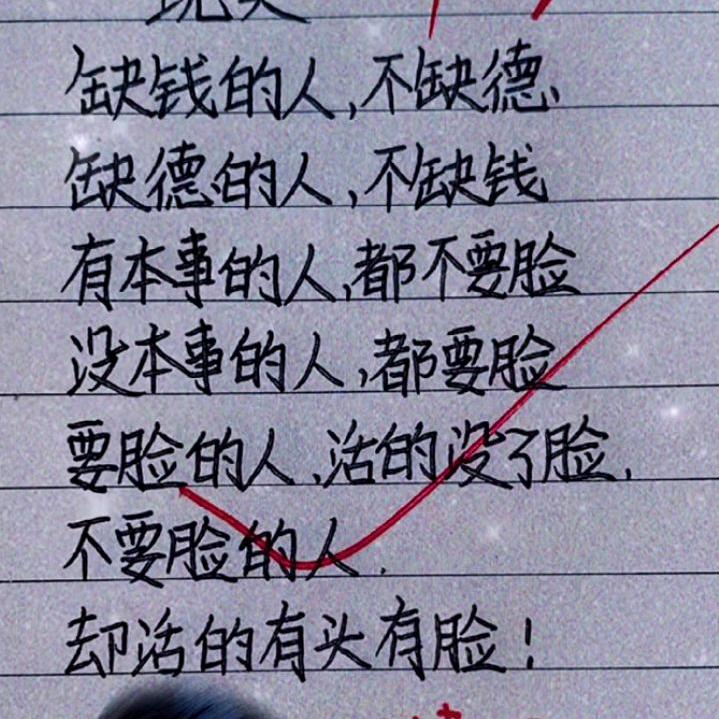 缺钱的人,不缺德.
缺德的人,不缺钱
有本事的人,都不要脸
没本事的人,都要脸
要脸的人,活的没了脸.
不要脸的人.
却活的有头有脸!